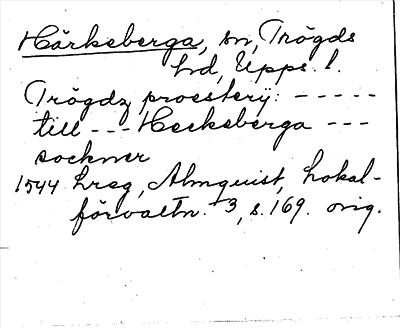 Härkeberga, sn, Trögds
hd, Upps. l.
Trögdz proesterij: - - - - -
till - - - Heckeberga - - -
sockner
1544 Lreg, Almquist, Lokal-
förvaltn. 3, s. 169. orig.